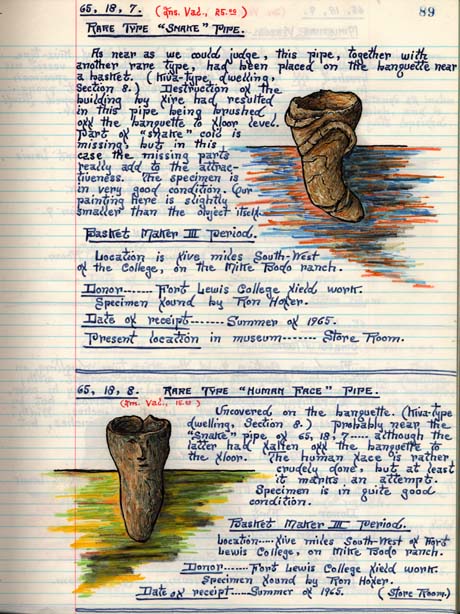 65, 18, 7. (Ins. Val., 25.00) 89
Rare Type "Snake" Pipe.
As near as we could judge, this pipe, together with
another rare type, had been placed on the banquette near
a basket. (Kiva-type dwelling,
Section 8.) Destruction of the
building by fire had resulted
in this pipe being brushed
off the banquette to floor level.
Part of "snake" coil is
missing, but in this
case the missing parts
really add to the attrac-
tiveness. The specimen is
in very good condition. Our
painting here is slightly
smaller than the object itself.
Basket Maker III Period.
Location is five miles South-West
of the College, on the Mike Bodo ranch.
Donor------ Fort Lewis College field work.
Specimen found by Ron Hofer.
Date of receipt------- Summer of 1965.
Present location in museum------ Store Room.
65, 18, 8. Rare Type "Human Face" Pipe.
(Ins. Val., 15.00)
Uncovered on the banquette. (Kiva-type
dwelling, Section 8.) Probably near the
"Snake" pipe of 65, 18, 7---- although the
latter had fallen off the banquette to
the floor. The human face is rather
crudely done, but at least
it marks an attempt.
Specimen is in quite good
condition.
Basket Maker III Period.
Location----Five miles South-West of Fort
Lewis College, on Mike Bodo ranch.
Donor----Fort Lewis College field work.
Specimen found by Ron Hofer.
Date of receipt----Summer of 1965. (Store Room.)